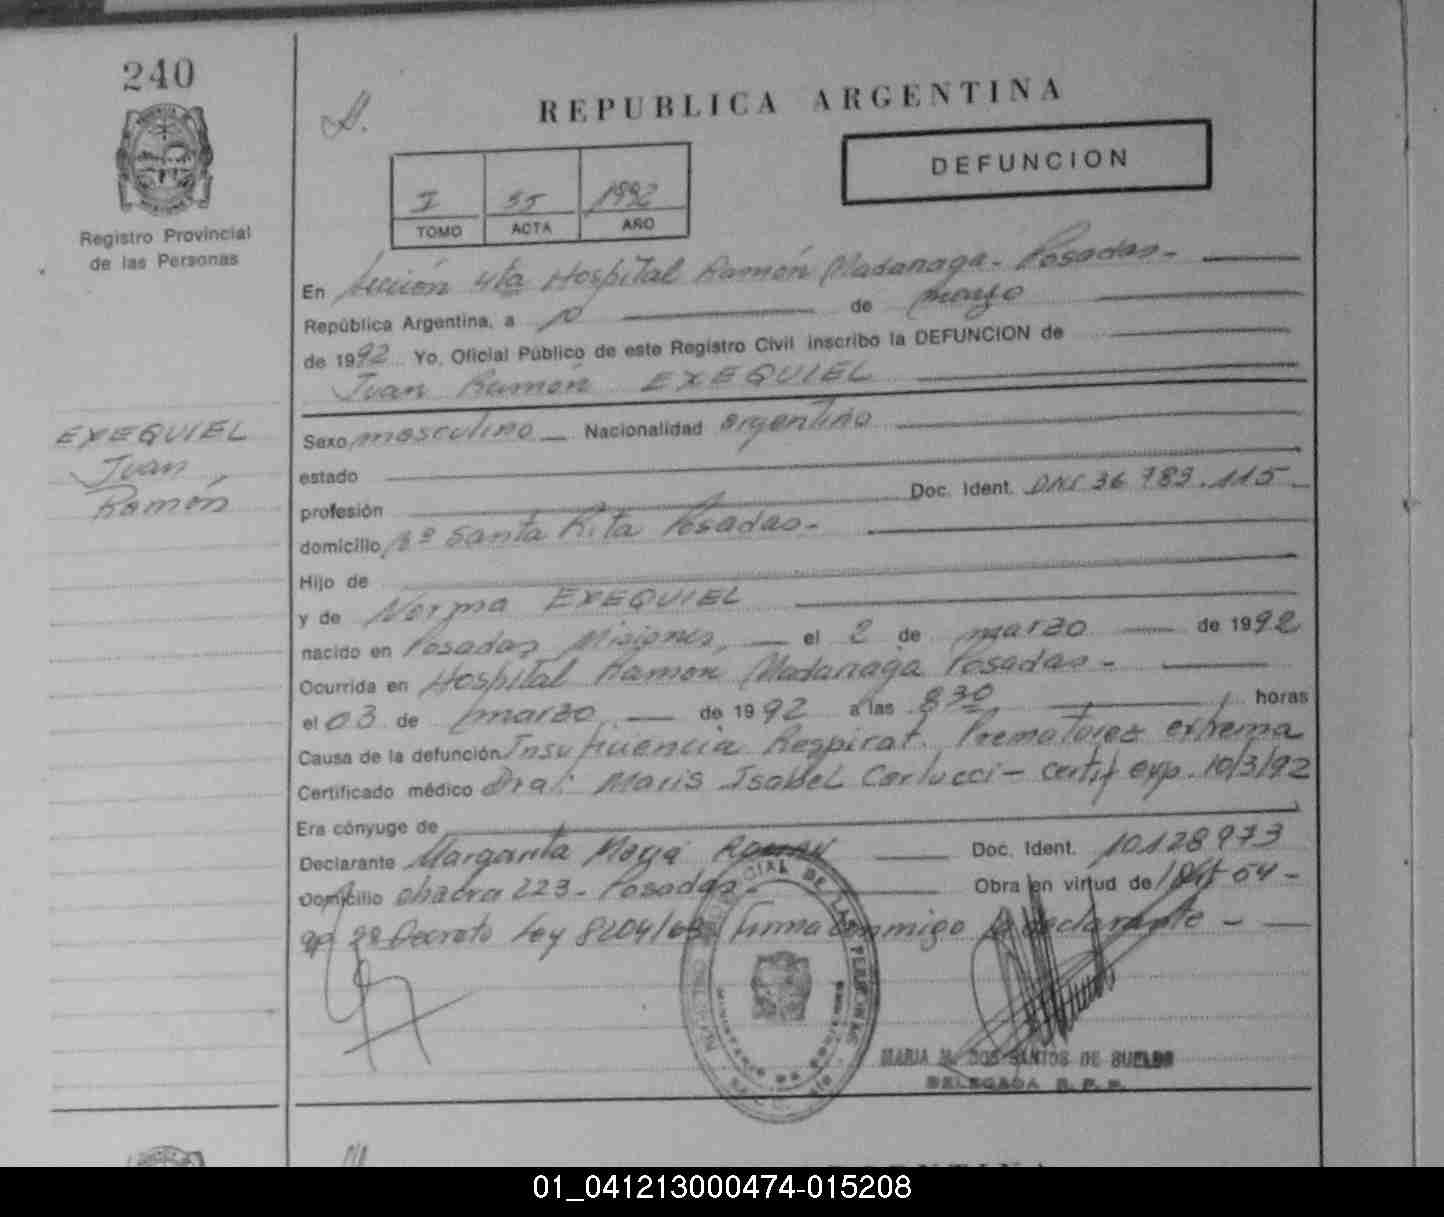 240
Registro Provincial
de las Personas
REPUBLICA ARGENTINA
DEFUNCION
I 55 1992
TOMO ACTA AÑO
En Sección 4ta Hospital Ramón Madariaga - Posadas -
República Argentina, a 10 de marzo
de 1992 Yo, Oficial Público de este Registro Civil inscribo la DEFUNCION de
Juan Ramón EXEQUIEL
EXEQUIEL
Juan
Ramón
Sexo masculino Nacionalidad argentino
estado
profesión Doc. Ident. DNI 36.783.115
domicilio Bº Santa Rita Posadas -
Hijo de
y de Norma EXEQUIEL
nacido en Posadas Misiones, el 2 de marzo de 1992
Ocurrida en Hospital Ramón Madariaga Posadas -
el 03 de marzo de 1992 a las 8 30 horas
Causa de la defunción Insuficiencia Respirat. Prematurez extrema
Certificado médico Dra: Maris Isabel Carlucci - certif exp. 10/3/92
Era cónyuge de
Declarante Margarita María ROMAN Doc. Ident. 10.128.973
Domicilio chacra 223 - Posadas - Obra en virtud de Art 54 -
ap 2º Decreto Ley 8204/63 firma conmigo la declarante -
MARIA M. DOS SANTOS DE SUELDO
DELEGADA R. P. P.
01_041213000474-015208